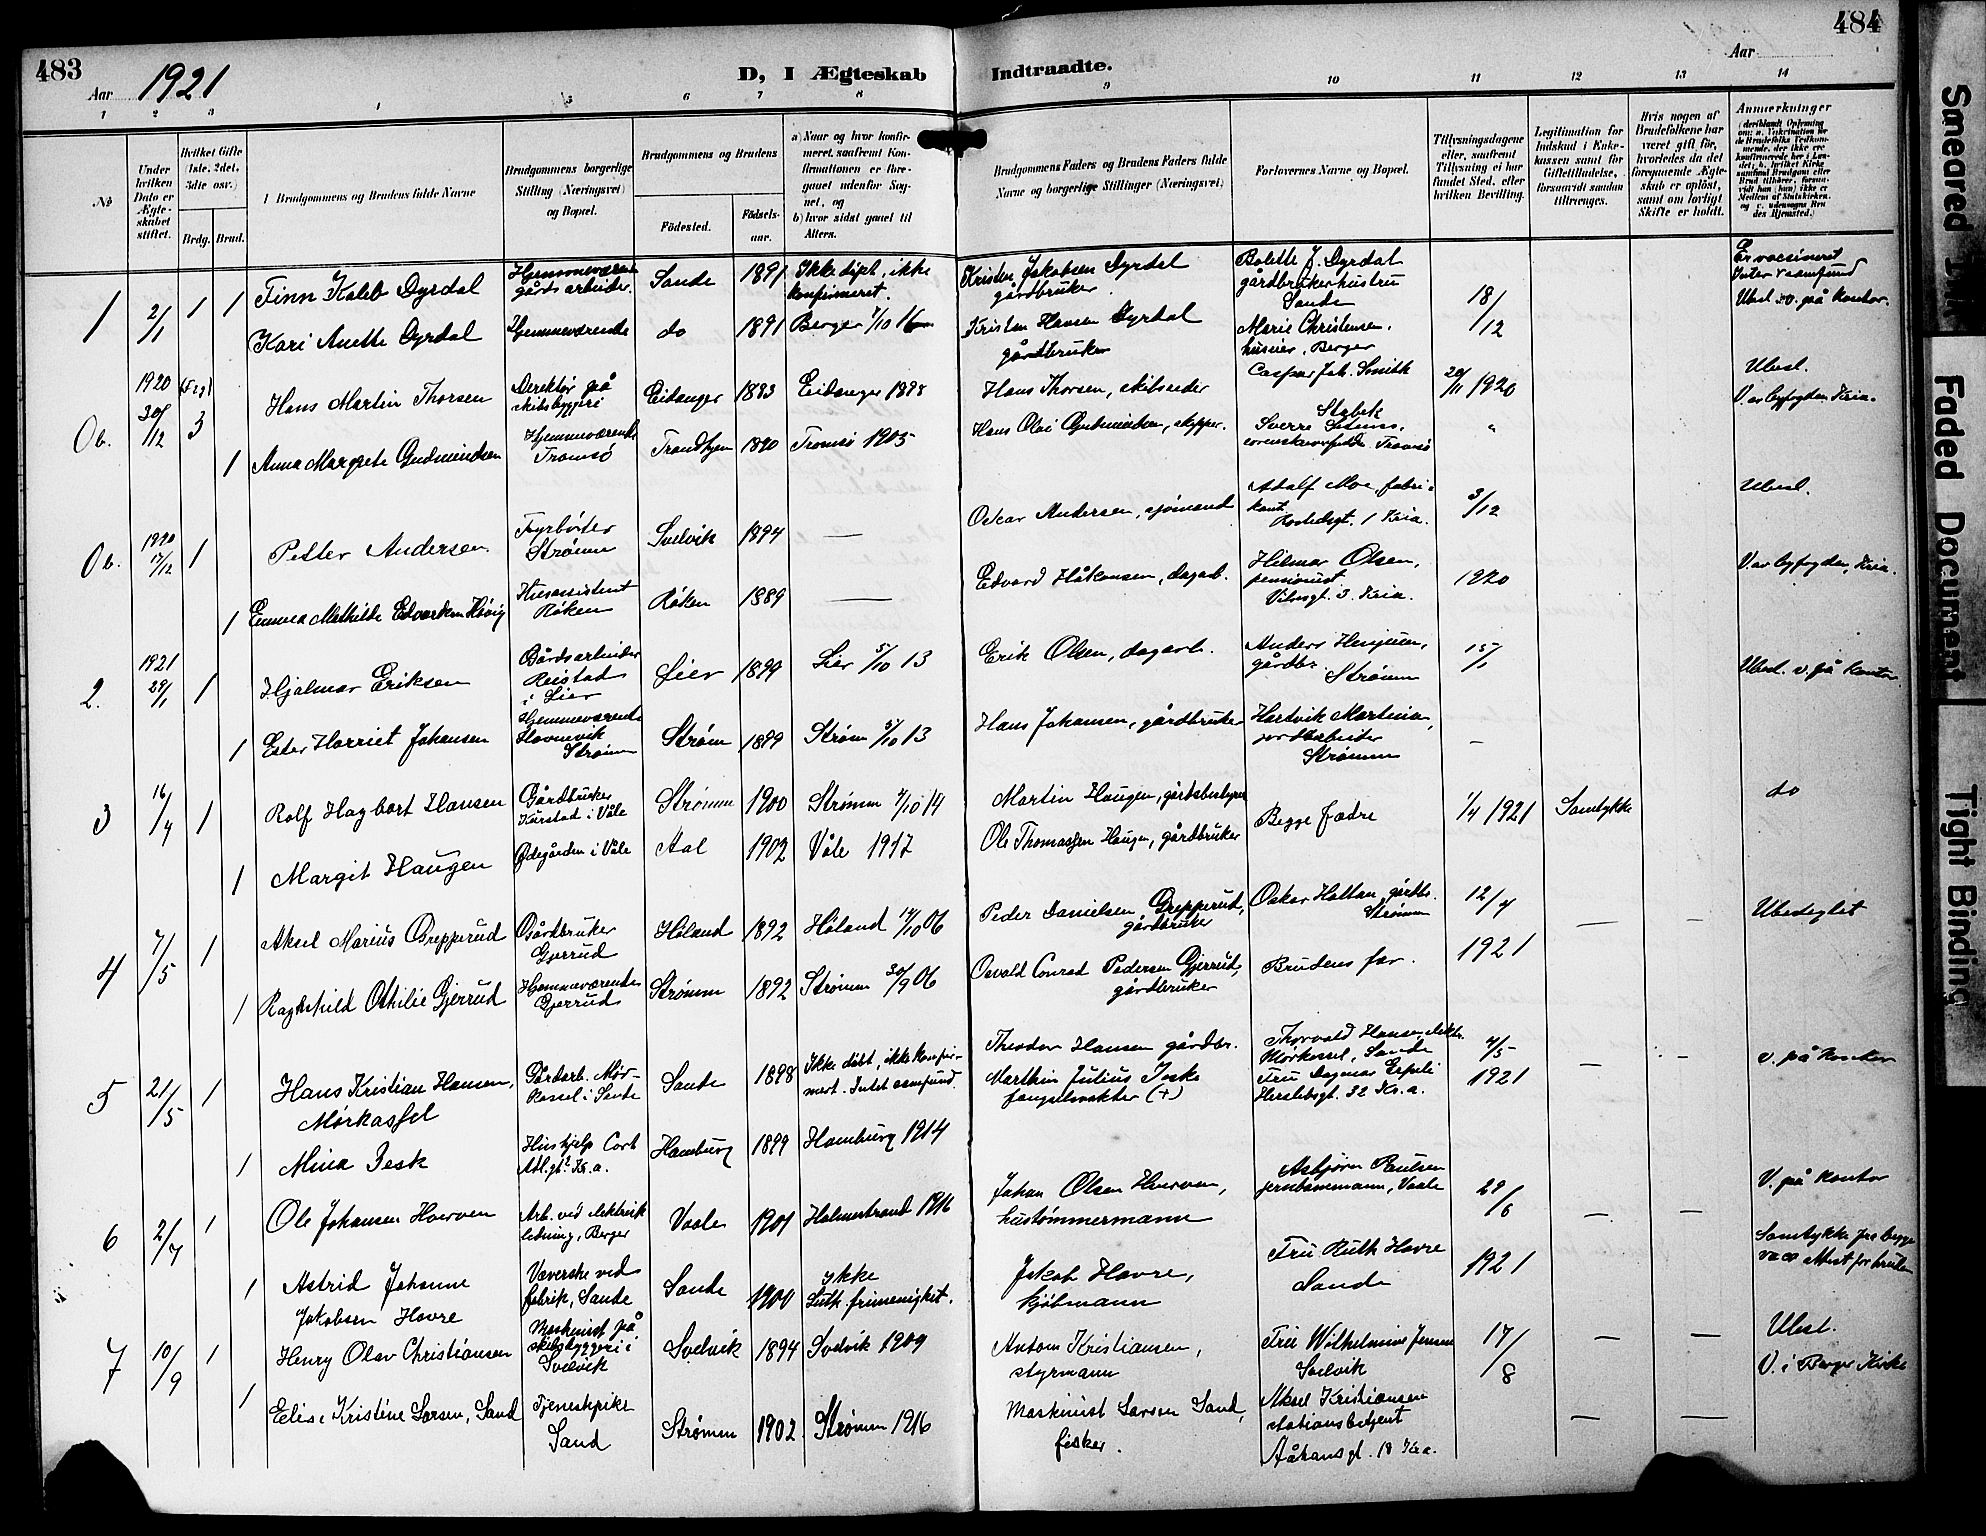 483
Aar 1921
D, I Ægteskab Indtraadte.
Aar
484
1 2 3 4 5 6 7 8 9 10 11 12 13 14
No
Under hvilken Dato er Ægteskabet stiftet.
Hvilket Gifte (1ste, 2det, 3die osv.)
Brdg. Brud.
Brudgommens og Brudens fulde Navne
Brudgommens borgerlige Stilling (Næringsvei) og Bopæl.
Brudgommens og Brudens
Fødested. Fødselsaar.
a) Naar og hvor konfirmeret, saafremt Konfirmationen er foregaaet udenfor Sognet, og
b) hvor sidst gaaet til Alters.
Brudgommens Faders og Brudens Faders fulde Navne og borgerlige Stillinger (Næringsvei)
Forlovernes Navne og Bopæl.
Tillysningsdagene eller, saafremt Tillysning ei har fundet Sted, efter hvilken Bevilling.
Legitimation for Indskud i Enkekassen samt for Giftetilladelse, forsaavidt saadan tiltrænges.
Hvis nogen af Brudefolkene har været gift før, hvorledes da det foregaaende Ægteskab er opløst, samt om lovligt Skifte er holdt.
Anmærkninger
1 2/1 1 1 Finn Kaleb Dyrdal Hjemmeværende gårdsarbeider Sande 1891 Ikke døpt, ikke konfirmeret. Kristen Jakobsen Dyrdal gårdbruker Bolette J. Dyrdal gårdbrukerhustru Sande 18/12 Er vaccineret
Kari Anette Dyrdal Hjemmeværende do 1891 Berger Kristen Hansen Dyrdal gårdbruker Marie Christensen, Berger på kontor.
Ob. 1920 30/12 3 Hans Martin Thorsen Direktør på skibsbyggeri Eidanger 1883 Eidanger 1898 Hans Thorsen, skibsreder Caspar Joh. Smith Stabek 20/11 1920 Ubesl.
1 Anna Margrete Gudmundsen Hjemmeværende Tromsø Trondhjem 1890 Tromsø 1905 Hans Olai Gudmundsen, skipper. Sverre Tromsø " V. av byfogden, Kria.
Ob. 1920 17/12 1 Petter Andersen Fyrbøter Strømm Svelvik 1894 — Oskar Andersen, sjømand Adolf Moe, fabrikant 1 Kria. 3/12 Ubesl.
1 Emma Mathilde Edvardsen Høvig Husassistent Røken Røken 1889 — Edvard Håkonsen, dagarb. Hilmar Olsen, pensionist 3. Kria. 1920 V. av byfogden, Kria.
2. 1921 29/1 1 Hjalmar Eriksen Gårdsarbeider Reistad i Lier Lier 1899 Lier 5/10 13 Erik Olsen, dagarb. Anders gårdbr. Strømm 15/1 Ubesl. v. på kontor
1 Ester Harriet Johansen Hjemmeværende Havnevik Strømm Strøm 1899 Strøm 5/10 13 Hans Johansen, gårdbruker Hartvik Jordarbeider Strømm —
3 16/4 1 Rolf Hagbart Hansen Gårdbruker i Våle Strømm 1900 Strømm 4/10 14 Martin Haugen, gårdsbestyrer Begge fædre 1/4 1921 Samtykke do
1 Margit Haugen Ødegården i Våle Aal 1902 Våle 1917 Ole Thomassen Haugen, gårdbruker
4 7/5 1 Aksel Marius Grepperud Gårdbruker Gjerrud Høland 1892 Høland 14/10 06 Peder Danielsen Grepperud, gårdbruker Oskar Holtan, gårdb. Strømm 12/4 — — Ubeseglet
1 Ragnhild Othilie Gjerrud Hjemmeværende Gjerrud Strømm 1892 Strømm 30/9 06 Osvald Conrad Pedersen Gjerrud, gårdbruker Brudens far. 1921
5 21/5 1 Hans Kristian Hansen, Mørkassel Gårdarb. Mørkassel i Sande Sande 1898 Ikke døbt, ikke konfirmert. Intet samfund. Theodor Hansen gårdbr. Thorvald Hansen Mørkassel, Sande 4/5 — — v. på kontor
1 Mina Jesk Hushjelp Hamburg 1899 Hamburg 1914 Marthin Julius Jesk fangevokter (+) Fru Dagmar Herslebsgt. 32 Kr.a. 1921
6 2/7 1 Ole Johansen Hverven Arb. ved elektrisk ledning, Berger Vaale 1901 Holmestrand 1916 Johan Olsen Hverven, hustømmermann Asbjørn Paulsen jernbanemann, Vaale 29/6 — — V. på kontor
1 Astrid Johanne Jakobsen Havre Væverske ved fabrik, Sande Sande 1900 Ikke Luth. frimenighet. Jakob Havre, kjøbmann Fru Ruth Havre Sande 1921 Samtykke fra begge
7 10/9 1 Henry Olav Christiansen Maskinist på skibsbyggeri i Svelvik Svelvik 1894 Svelvik 1909 Anton Kristiansen, styrmann Fru Wilhelmine Jensen Svelvik 17/8 — — Ubesl.
1 Elise Kristine Larsen, Sand Tjenestepike Sand Strømm 1902 Strømm 1916 Maskinist Larsen Sand, fisker. Aksel Kristiansen stationsbetjent 18 Kra. — — V. i Berger Kirke
Smeared Ink
Faded Document
Tight Binding